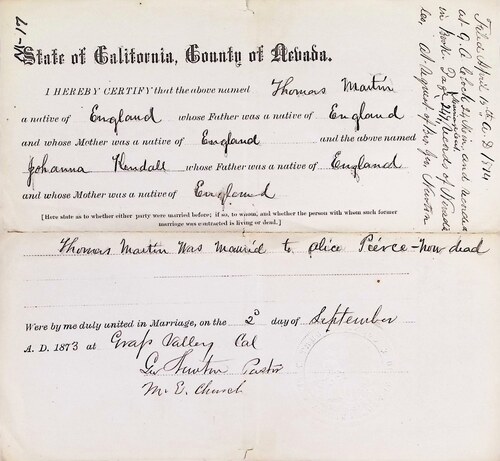 State of California, County of Nevada.
I HEREBY CERTIFY that the above named Thomas Martin
a native of England whose Father was a native of England
and whose Mother was a native of England and the above named
Johanna Kendall whose Father was a native of England
and whose Mother was a native of England
[Here state as to whether either party were married before; if so, to whom, and whether the person with whom such former
marriage was contracted is living or dead.]
Thomas Martin Was married to Alice Peirce - Now dead
Were by me duly united in Marriage, on the 2d day of September
A. D. 1873 at Grass Valley Cal
Geo Newton Pastor
M. E. Church
Filed April 15th A. D. 1874
at o'clock and recorded
in Book Page Records of Nevada
Co, at request of Rev. Geo. Newton